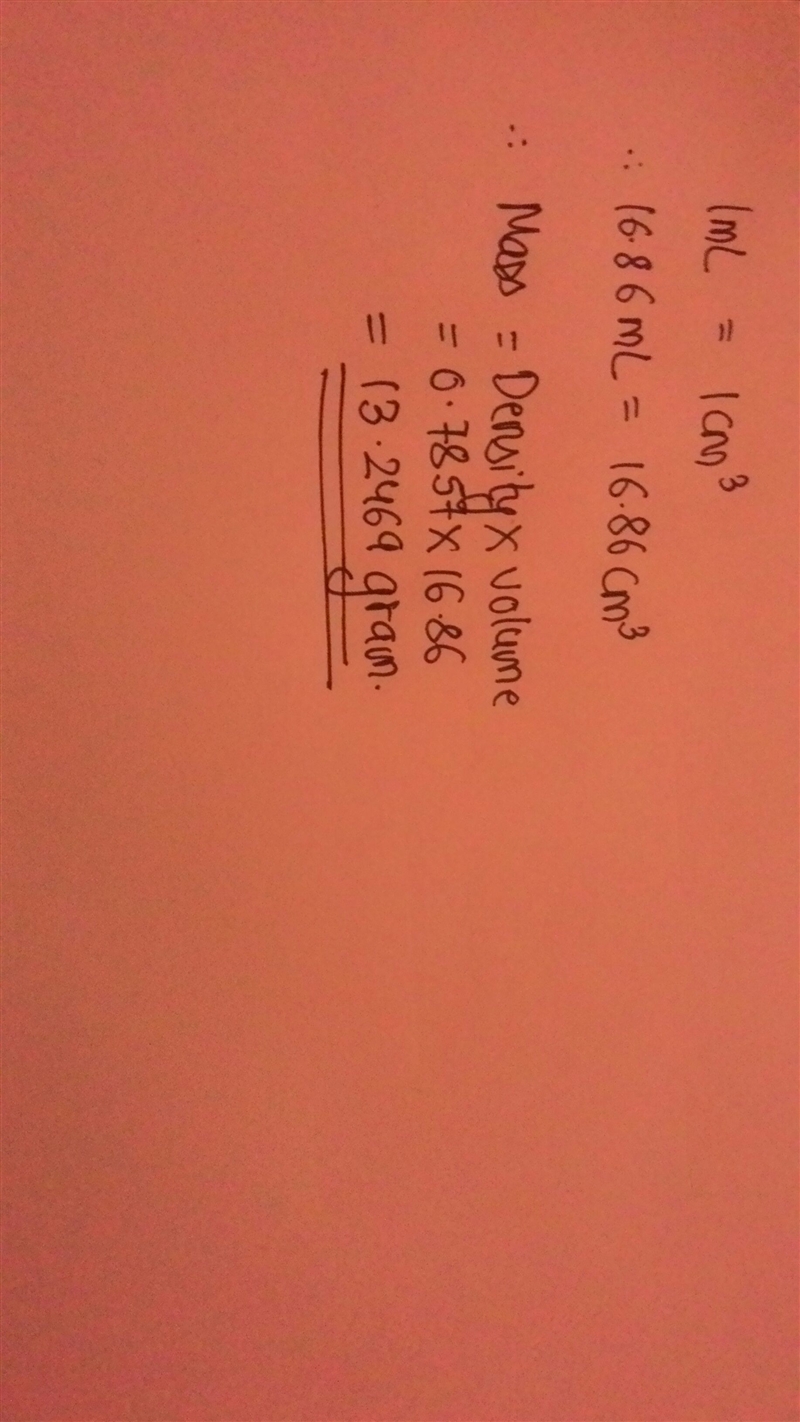 1mL = 1cm³
∴ 16.86mL = 16.86cm³
∴ Mass = Density x volume
= 0.7857 x 16.86
= 13.2469 gram.